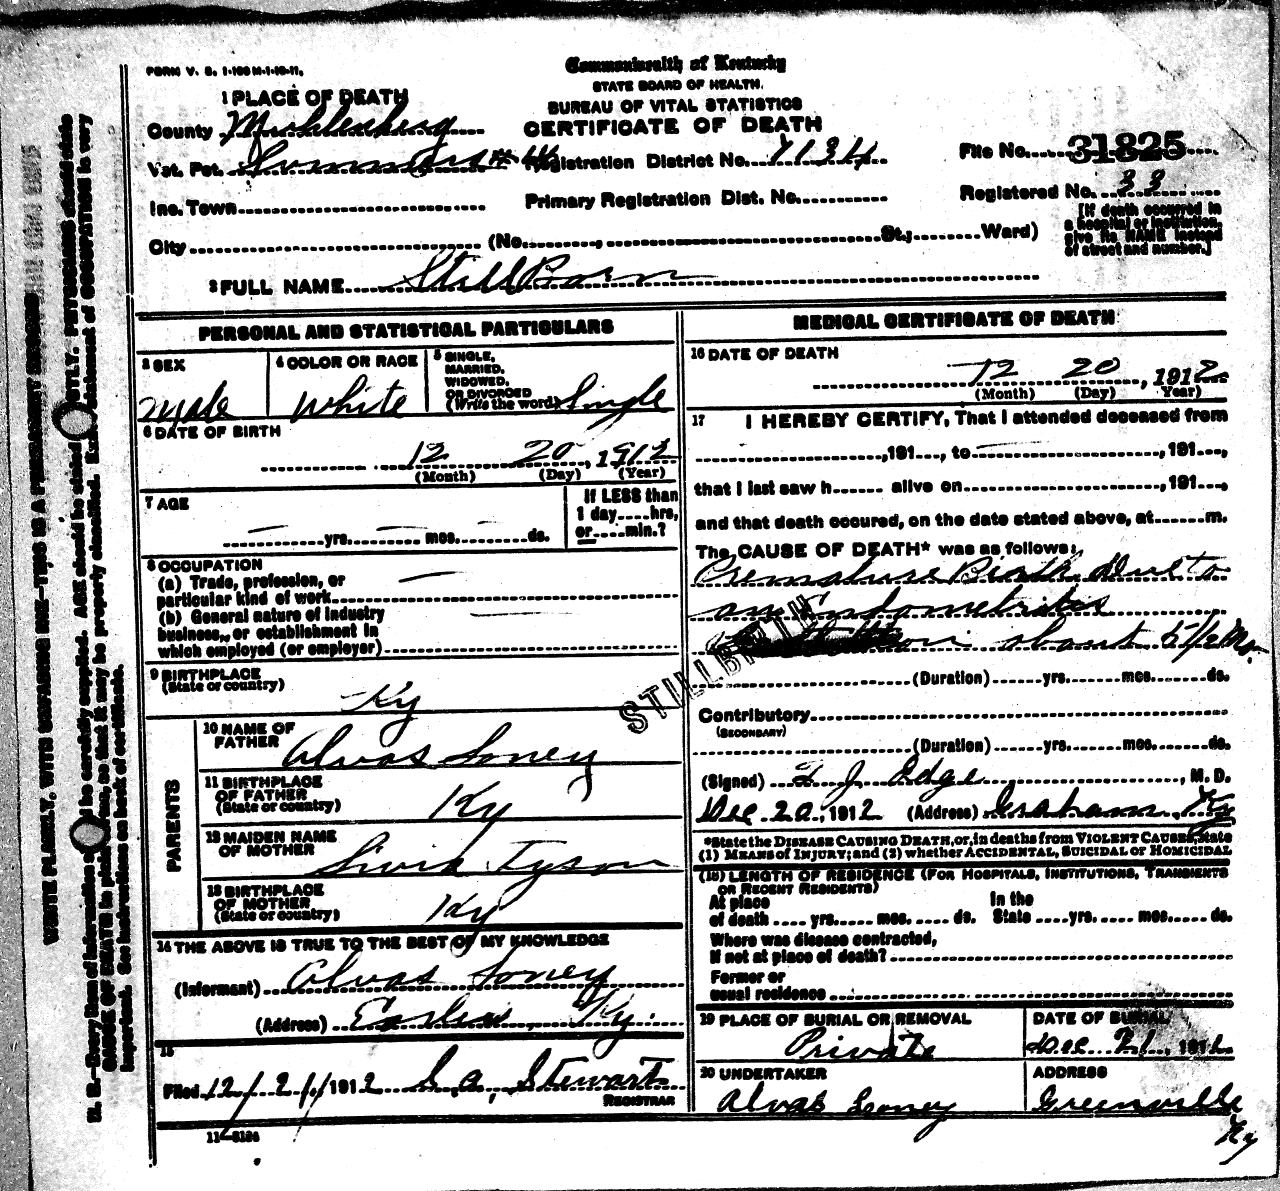 FORM V. S. 1-100 M-1-10-11.
Commonwealth of Kentucky
STATE BOARD OF HEALTH.
BUREAU OF VITAL STATISTICS
CERTIFICATE OF DEATH
1 PLACE OF DEATH
County Muhlenberg
Vot. Pct. Registration District No. 7134
File No. 31825
Inc. Town Primary Registration Dist. No.
Registered No. 33
City (No. , St.; Ward)
[If death occurred in
a hospital or institution,
give its NAME instead
of street and number.]
2 FULL NAME StillBorn
PERSONAL AND STATISTICAL PARTICULARS
3 SEX
Male
4 COLOR OR RACE
White
5 SINGLE,
MARRIED,
WIDOWED,
OR DIVORCED
(Write the word) Single
6 DATE OF BIRTH
12 20, 1912
(Month) (Day) (Year)
7 AGE
yrs. mos. ds.
If LESS than
1 day....hrs,
or....min.?
8 OCCUPATION
(a) Trade, profession, or
particular kind of work
(b) General nature of industry
business, or establishment in
which employed (or employer)
9 BIRTHPLACE
(State or country)
Ky
PARENTS
10 NAME OF
FATHER
Alvas Loney
11 BIRTHPLACE
OF FATHER
(State or country)
Ky
12 MAIDEN NAME
OF MOTHER
Tyson
13 BIRTHPLACE
OF MOTHER
(State or country)
Ky
14 THE ABOVE IS TRUE TO THE BEST OF MY KNOWLEDGE
(Informant) Alvas Loney
(Address) Ky.
15
Filed 12/21/ 1912 S. A. Stewart
REGISTRAR
11-3184
MEDICAL CERTIFICATE OF DEATH
16 DATE OF DEATH
12 20, 1912
(Month) (Day) (Year)
17 I HEREBY CERTIFY, That I attended deceased from
,191...., to ,191....,
that I last saw h...... alive on , 191....,
and that death occured, on the date stated above, at.......m.
The CAUSE OF DEATH* was as follows:
Premature Birth due to
an Endometritis
about 5 1/2 Mo.
STILLBIRTH
(Duration) yrs. mos. ds.
Contributory
(SECONDARY)
(Duration) yrs. mos. ds.
(Signed) J. Edge, M. D.
Dec 20, 1912 (Address) Graham, Ky
*State the DISEASE CAUSING DEATH, or, in deaths from VIOLENT CAUSES, state
(1) MEANS of INJURY; and (2) whether ACCIDENTAL, SUICIDAL or HOMICIDAL
(18) LENGTH OF RESIDENCE (FOR HOSPITALS, INSTITUTIONS, TRANSIENTS
OR RECENT RESIDENTS)
At place In the
of death .... yrs. mos. .... ds. State ....yrs. mos. ds.
Where was disease contracted,
If not at place of death?
Former or
usual residence
19 PLACE OF BURIAL OR REMOVAL
Private
DATE OF BURIAL
Dec 21, 1912
20 UNDERTAKER
Alvas Loney
ADDRESS
Greenville
Ky
WRITE PLAINLY, WITH UNFADING INK—THIS IS A PERMANENT RECORD
N. B.—Every item of information should be carefully supplied. AGE should be stated EXACTLY. PHYSICIANS should state
CAUSE OF DEATH in plain terms, so that it may be properly classified. Exact statement of OCCUPATION is very
important. See instructions on back of certificate.